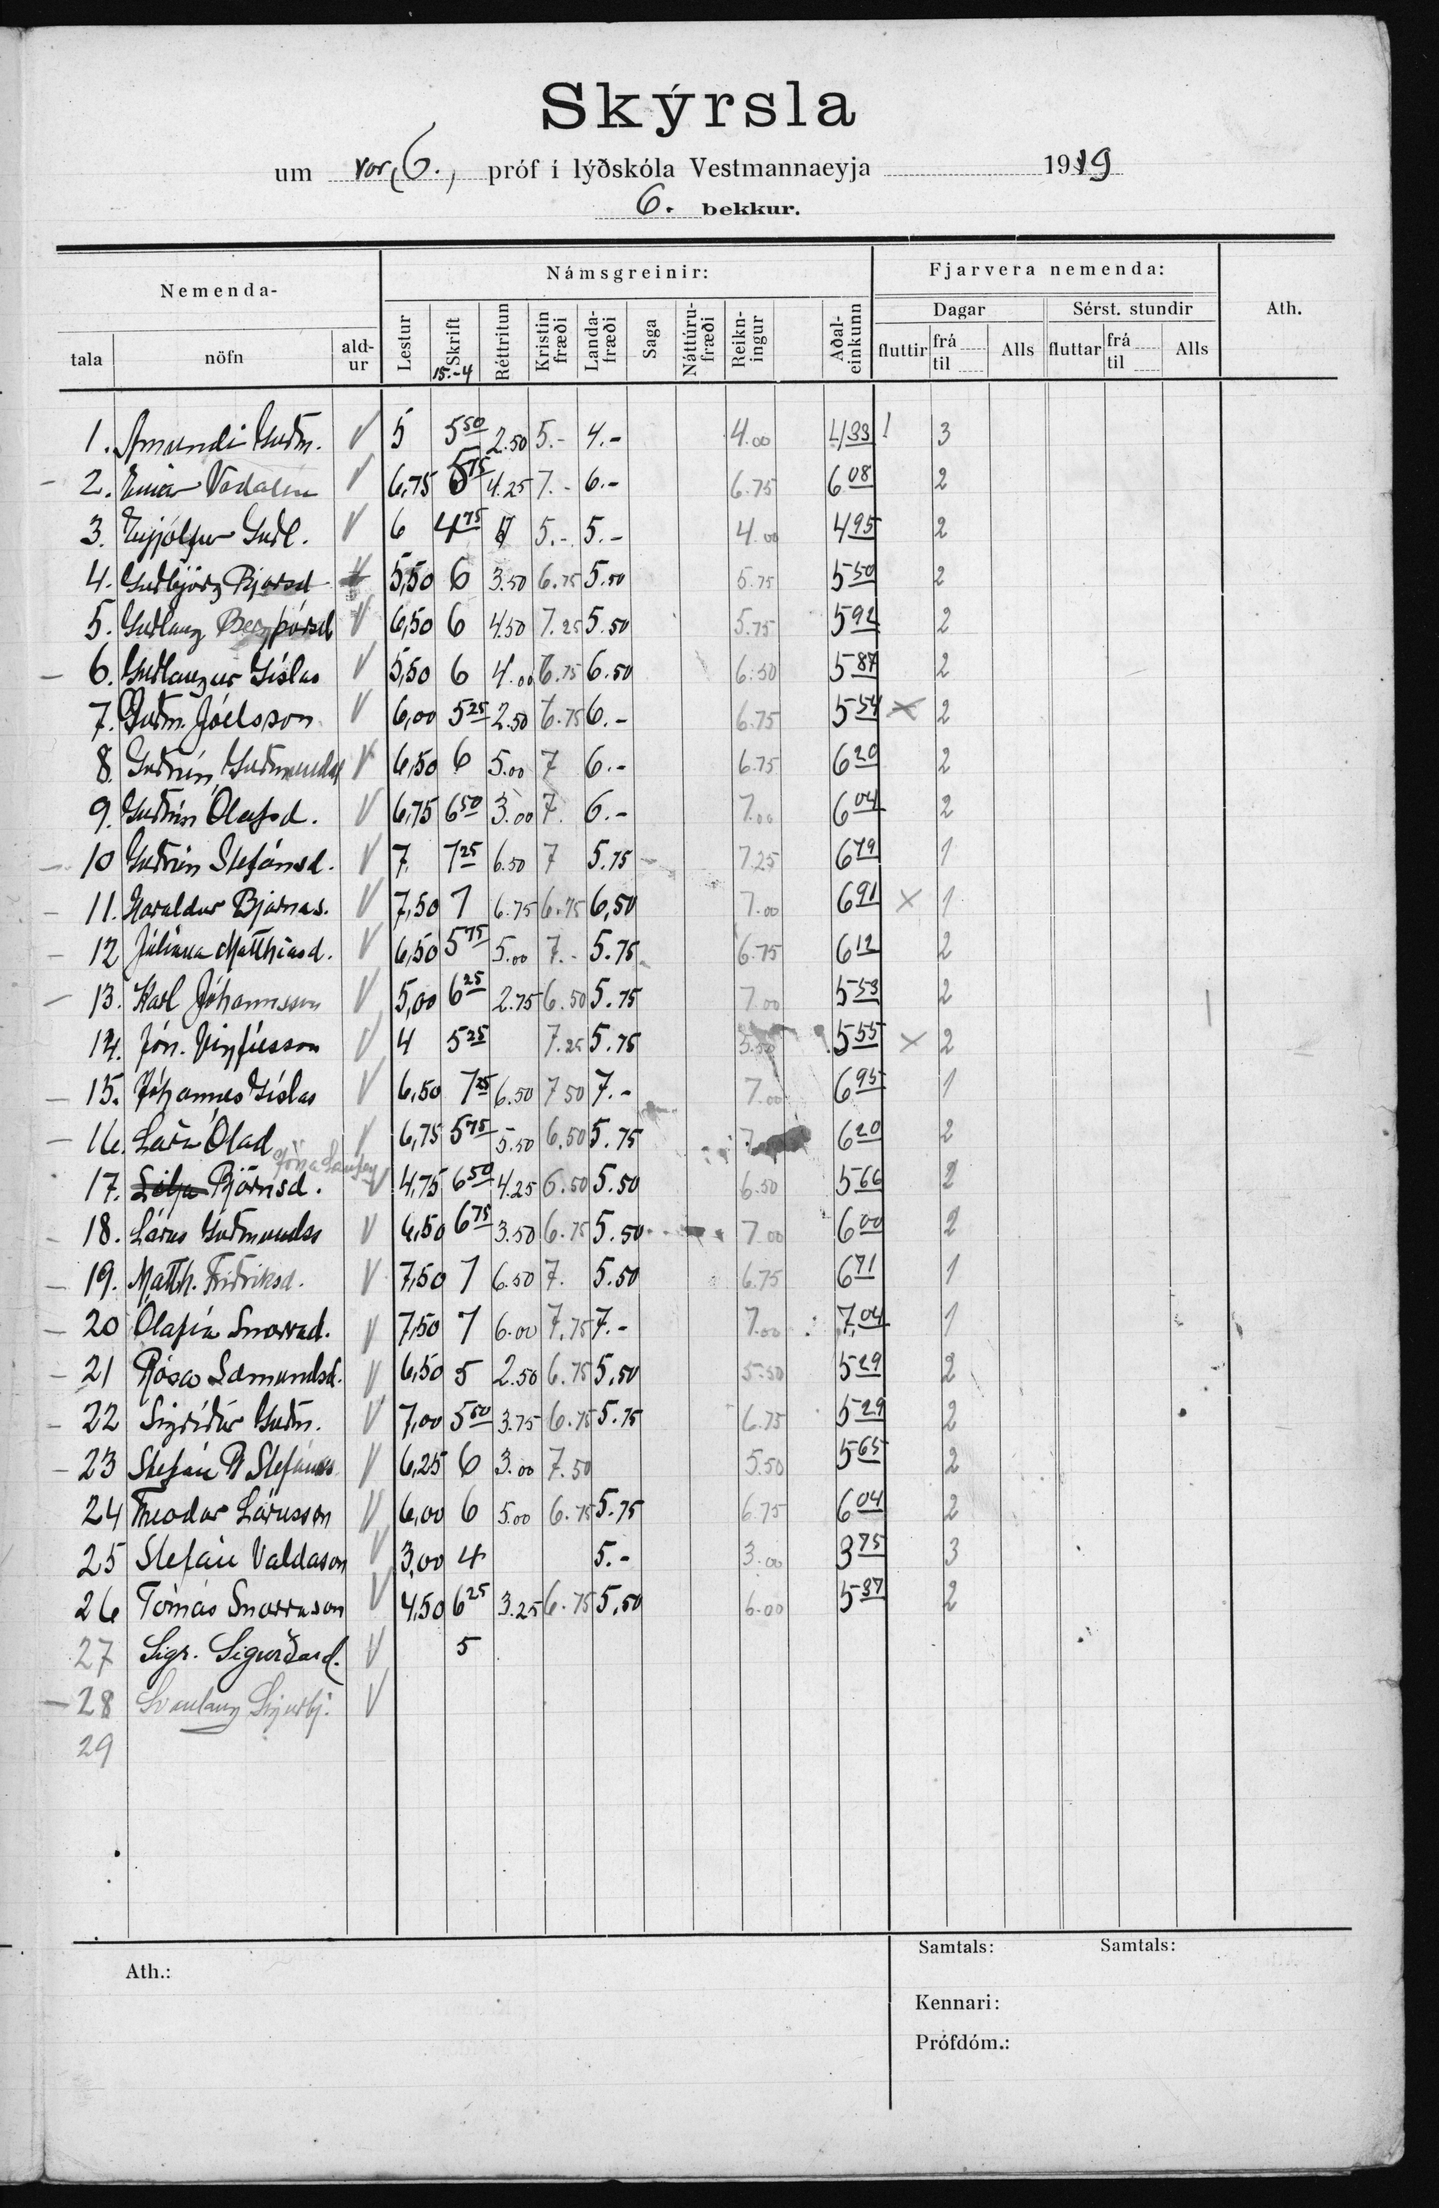 Skýrsla
um vor, 6., próf í lýðskóla Vestmannaeyja 1919
6. bekkur.
Nemenda- Námsgreinir: Fjarvera nemenda: Ath.
Dagar Sérst. stundir
tala nöfn ald-ur Lestur Skrift 15.-4 Réttritun Kristin fræði Landa-fræði Saga Náttúru-fræði Reikn-ingur Aðal-einkunn fluttir frá til Alls fluttar frá til Alls
1. Ámundi Guðm. V 5 5 50 2.50 5.- 4.- 4.00 4 33 1 3
- 2. Einar Vídalín V 6,75 5 75 4.25 7.- 6.- 6.75 6 08 2
3. Eyjólfur Guðl. V 6 4 75 5.- 5.- 4.00 4 95 2
4. Guðbjörg Bjarnad V 5,50 6 3.50 6.75 5.50 5.75 5 50 2
5. Guðlaug Bergþórsd V 6,50 6 4.50 7.25 5.50 5.75 5 92 2
- 6. Guðlaugur Gíslas V 5,50 6 4.00 6.75 6.50 6.50 5 87 2
7. Guðm. Jóelsson V 6,00 5 25 2.50 6.75 6.- 6.75 5 54 x 2
8. Guðrún Guðmundsd V 6,50 6 5.00 7 6.- 6.75 6 20 2
9. Guðrún Ólafsd. V 6,75 6 50 3.00 7. 6.- 7.00 6 04 2
- 10 Guðrún Stefánsd. V 7. 7 25 6.50 7 5.75 7.25 6 79 1
- 11. Haraldur Bjarnas. V 7,50 7 6.75 6.75 6,50 7.00 6 91 x 1
- 12 Júlíana Matthíasd. V 6,50 5 75 5.00 7.- 5.75 6.75 6 12 2
- 13. Karl Jóhannsson V 5,00 6 25 2.75 6.50 5.75 7.00 5 53 2
14. Jón. Vigfússon V 4 5 25 7.25 5.75 5.50 5 55 x 2
- 15. Jóhannes Gíslas V 6,50 7 25 6.50 7 50 7.- 7.00 6 95 1
- 16. Lára Ólad V 6,75 5 75 5.50 6,50 5.75 7 6 20 2
Jóna
17. Lilja Björnsd. V 4,75 6 50 4.25 6.50 5.50 6.50 5 66 2
- 18. Lárus Guðmundss V 6,50 6 75 3.50 6.75 5.50 7.00 6 00 2
- 19. Matth. Friðriksd. V 7,50 7 6.50 7. 5.50 6.75 6 71 1
- 20 Ólafía Snorrad. V 7,50 7 6.00 7.75 7.- 7.00 7,04 1
- 21 Rósa Sæmundsd. V 6,50 5 2.50 6.75 5,50 5.50 5 29 2
- 22 Sigríður Guðm. V 7,00 5 50 3.75 6.75 5.75 6.75 5 29 2
- 23 Stefán B Stefánss V 6,25 6 3.00 7.50 5.50 5 65 2
24 Theodor Lárusson V 6,00 6 5.00 6.75 5.75 6.75 6 04 2
25 Stefán Valdason V 3,00 4 5.- 3.00 3 75 3
26 Tómas Snorrason V 4,50 6 25 3.25 6.75 5,50 6.00 5 37 2
27 Sigr. Sigurðard. V 5
- 28 Svanlaug Sigurbj. V
29
Samtals: Samtals:
Ath.:
Kennari:
Prófdóm.: